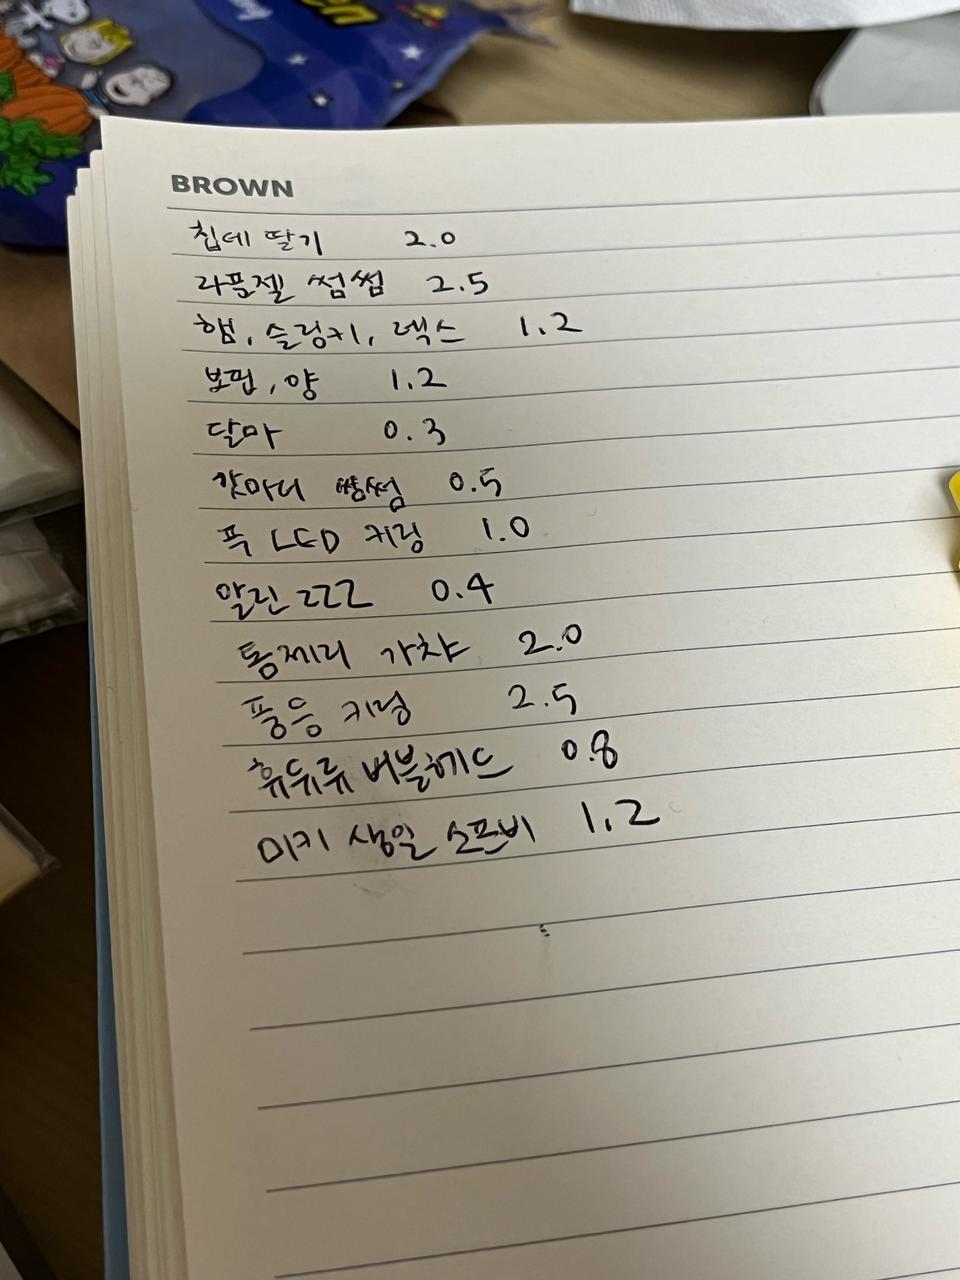 BROWN
칩데 딸기 2.0
라푼젤 썸썸 2.5
햄, 슬링키, 렉스 1.2
보핍, 양 1.2
달마 0.3
갓마더 썸썸 0.5
푹 LCD 키링 1.0
알린 zzz 0.4
톰제리 가챠 2.0
퐁응 키링 2.5
휴듀류 버블헤드 0.8
미키 생일 소프비 1.2